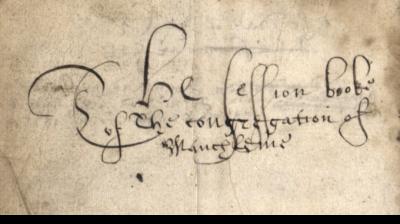 The session booke
of The congregation of
Mauchleine